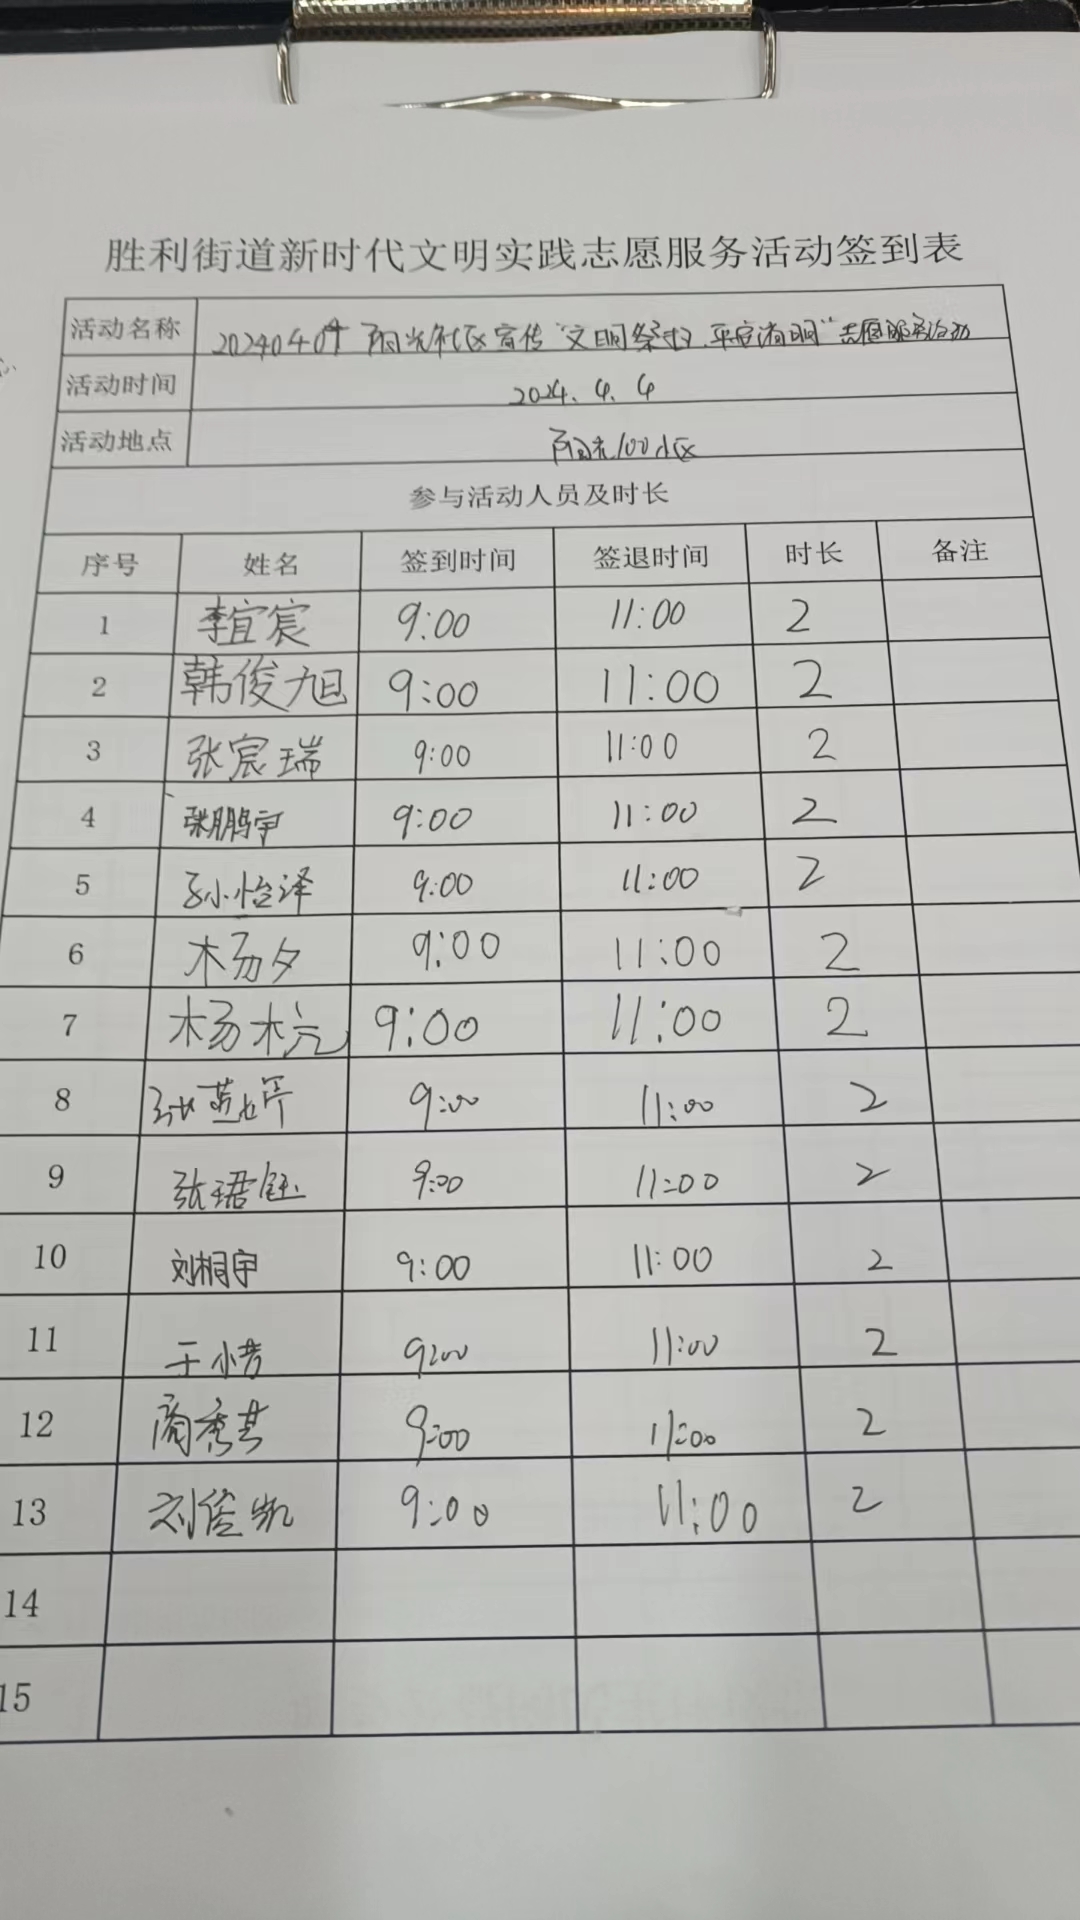 胜利街道新时代文明实践志愿服务活动签到表
活动名称 20240404 阳光社区宣传“文明祭扫、平安清明”志愿服务活动
活动时间 2024.4.4
活动地点 阳光100小区
参与活动人员及时长
序号 姓名 签到时间 签退时间 时长 备注
1 李宜宸 9:00 11:00 2
2 韩俊旭 9:00 11:00 2
3 张宸瑞 9:00 11:00 2
4 张鹏宇 9:00 11:00 2
5 孙怡泽 9:00 11:00 2
6 杨夕 9:00 11:00 2
7 杨杭 9:00 11:00 2
8 9:00 11:00 2
9 张珺钰 9:00 11:00 2
10 刘桐宇 9:00 11:00 2
11 于小昔 9:00 11:00 2
12 商秀芸 9:00 11:00 2
13 刘俊凯 9:00 11:00 2
14
15